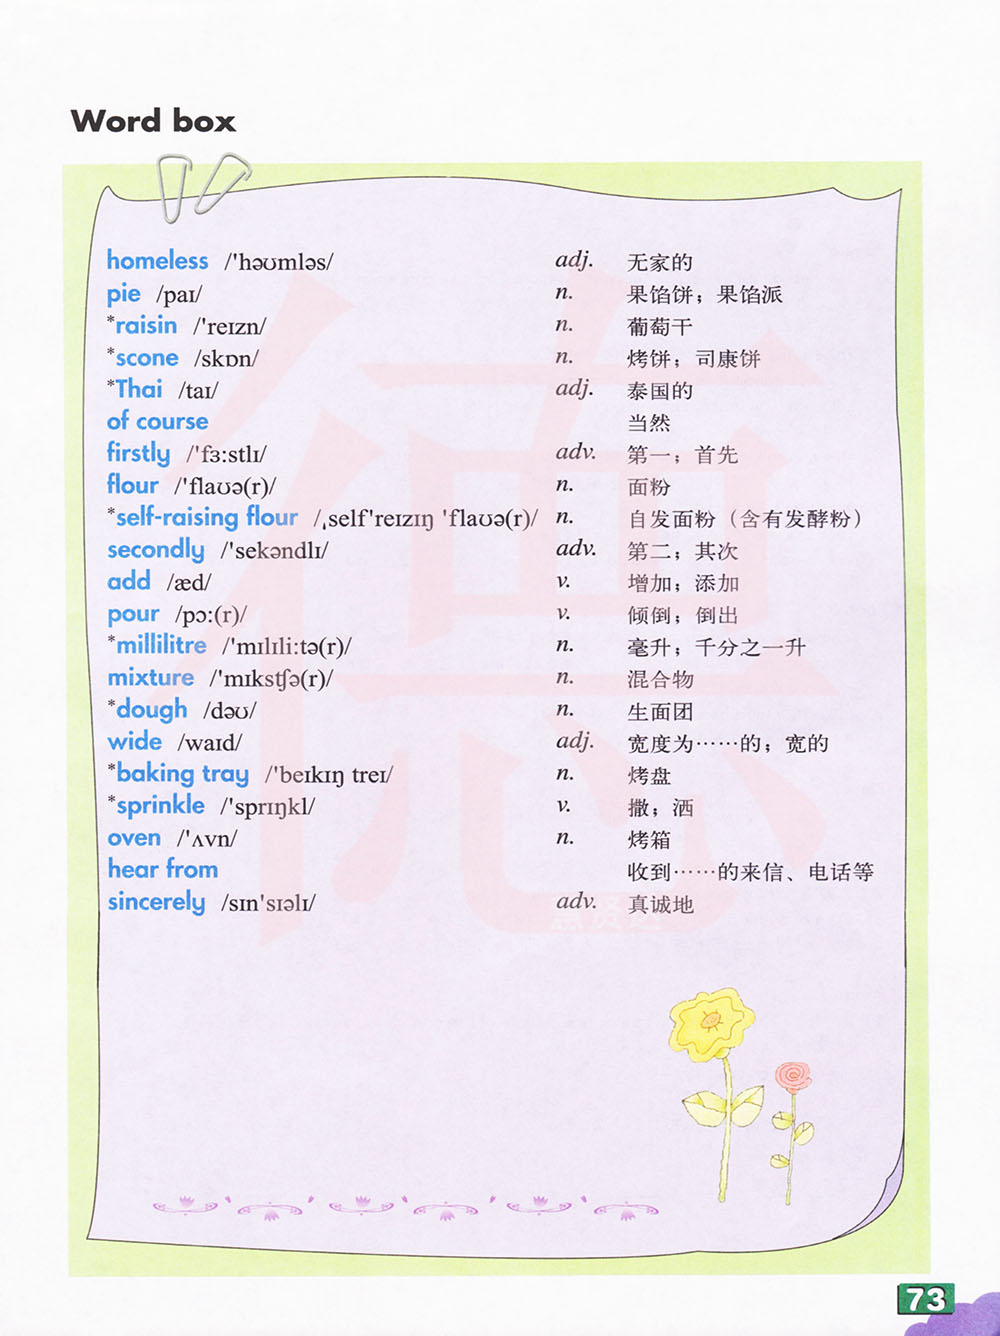 Word box
homeless /'həʊmləs/ adj. 无家的
pie /paɪ/ n. 果馅饼；果馅派
*raisin /'reɪzn/ n. 葡萄干
*scone /skɒn/ n. 烤饼；司康饼
*Thai /taɪ/ adj. 泰国的
of course 当然
firstly /'fɜ:stlɪ/ adv. 第一；首先
flour /'flaʊə(r)/ n. 面粉
*self-raising flour /ˌself'reɪzɪŋ 'flaʊə(r)/ n. 自发面粉（含有发酵粉）
secondly /'sekəndlɪ/ adv. 第二；其次
add /æd/ v. 增加；添加
pour /pɔ:(r)/ v. 倾倒；倒出
*millilitre /'mɪlɪli:tə(r)/ n. 毫升；千分之一升
mixture /'mɪkstʃə(r)/ n. 混合物
*dough /dəʊ/ n. 生面团
wide /waɪd/ adj. 宽度为……的；宽的
*baking tray /'beɪkɪŋ treɪ/ n. 烤盘
*sprinkle /'sprɪŋkl/ v. 撒；洒
oven /'ʌvn/ n. 烤箱
hear from 收到……的来信、电话等
sincerely /sɪn'sɪəlɪ/ adv. 真诚地
73